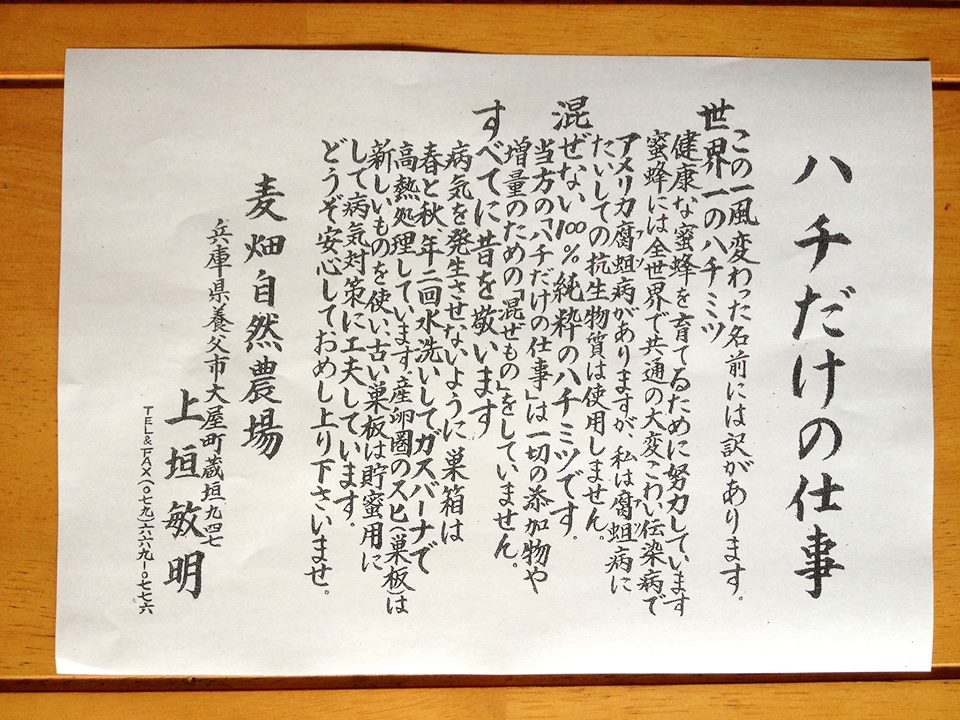 ハチだけの仕事
この一風変わった名前には訳があります。
世界一のハチミツ
健康な蜜蜂を育てるために努力しています
蜜蜂には全世界で共通の大変こわい伝染病で
アメリカ腐蛆病がありますが、私は腐蛆病に
たいしての抗生物質は使用しません。
混ぜない100%純粋のハチミツです。
当方の「ハチだけの仕事」は一切の添加物や
増量のための「混ぜもの」をしていません。
すべてに昔を敬います
病気を発生させないように巣箱は
春と秋、年二回水洗いしてガスバーナで
高熱処理しています。産卵圏のスヒ(巣板)は
新しいものを使い、古い巣板は貯蜜用に
して病気対策に工夫しています。
どうぞ安心しておめし上り下さいませ。
麦畑自然農場
兵庫県養父市大屋町蔵垣九四七
上垣敏明
TEL&FAX(〇七九)六六九-〇七七六